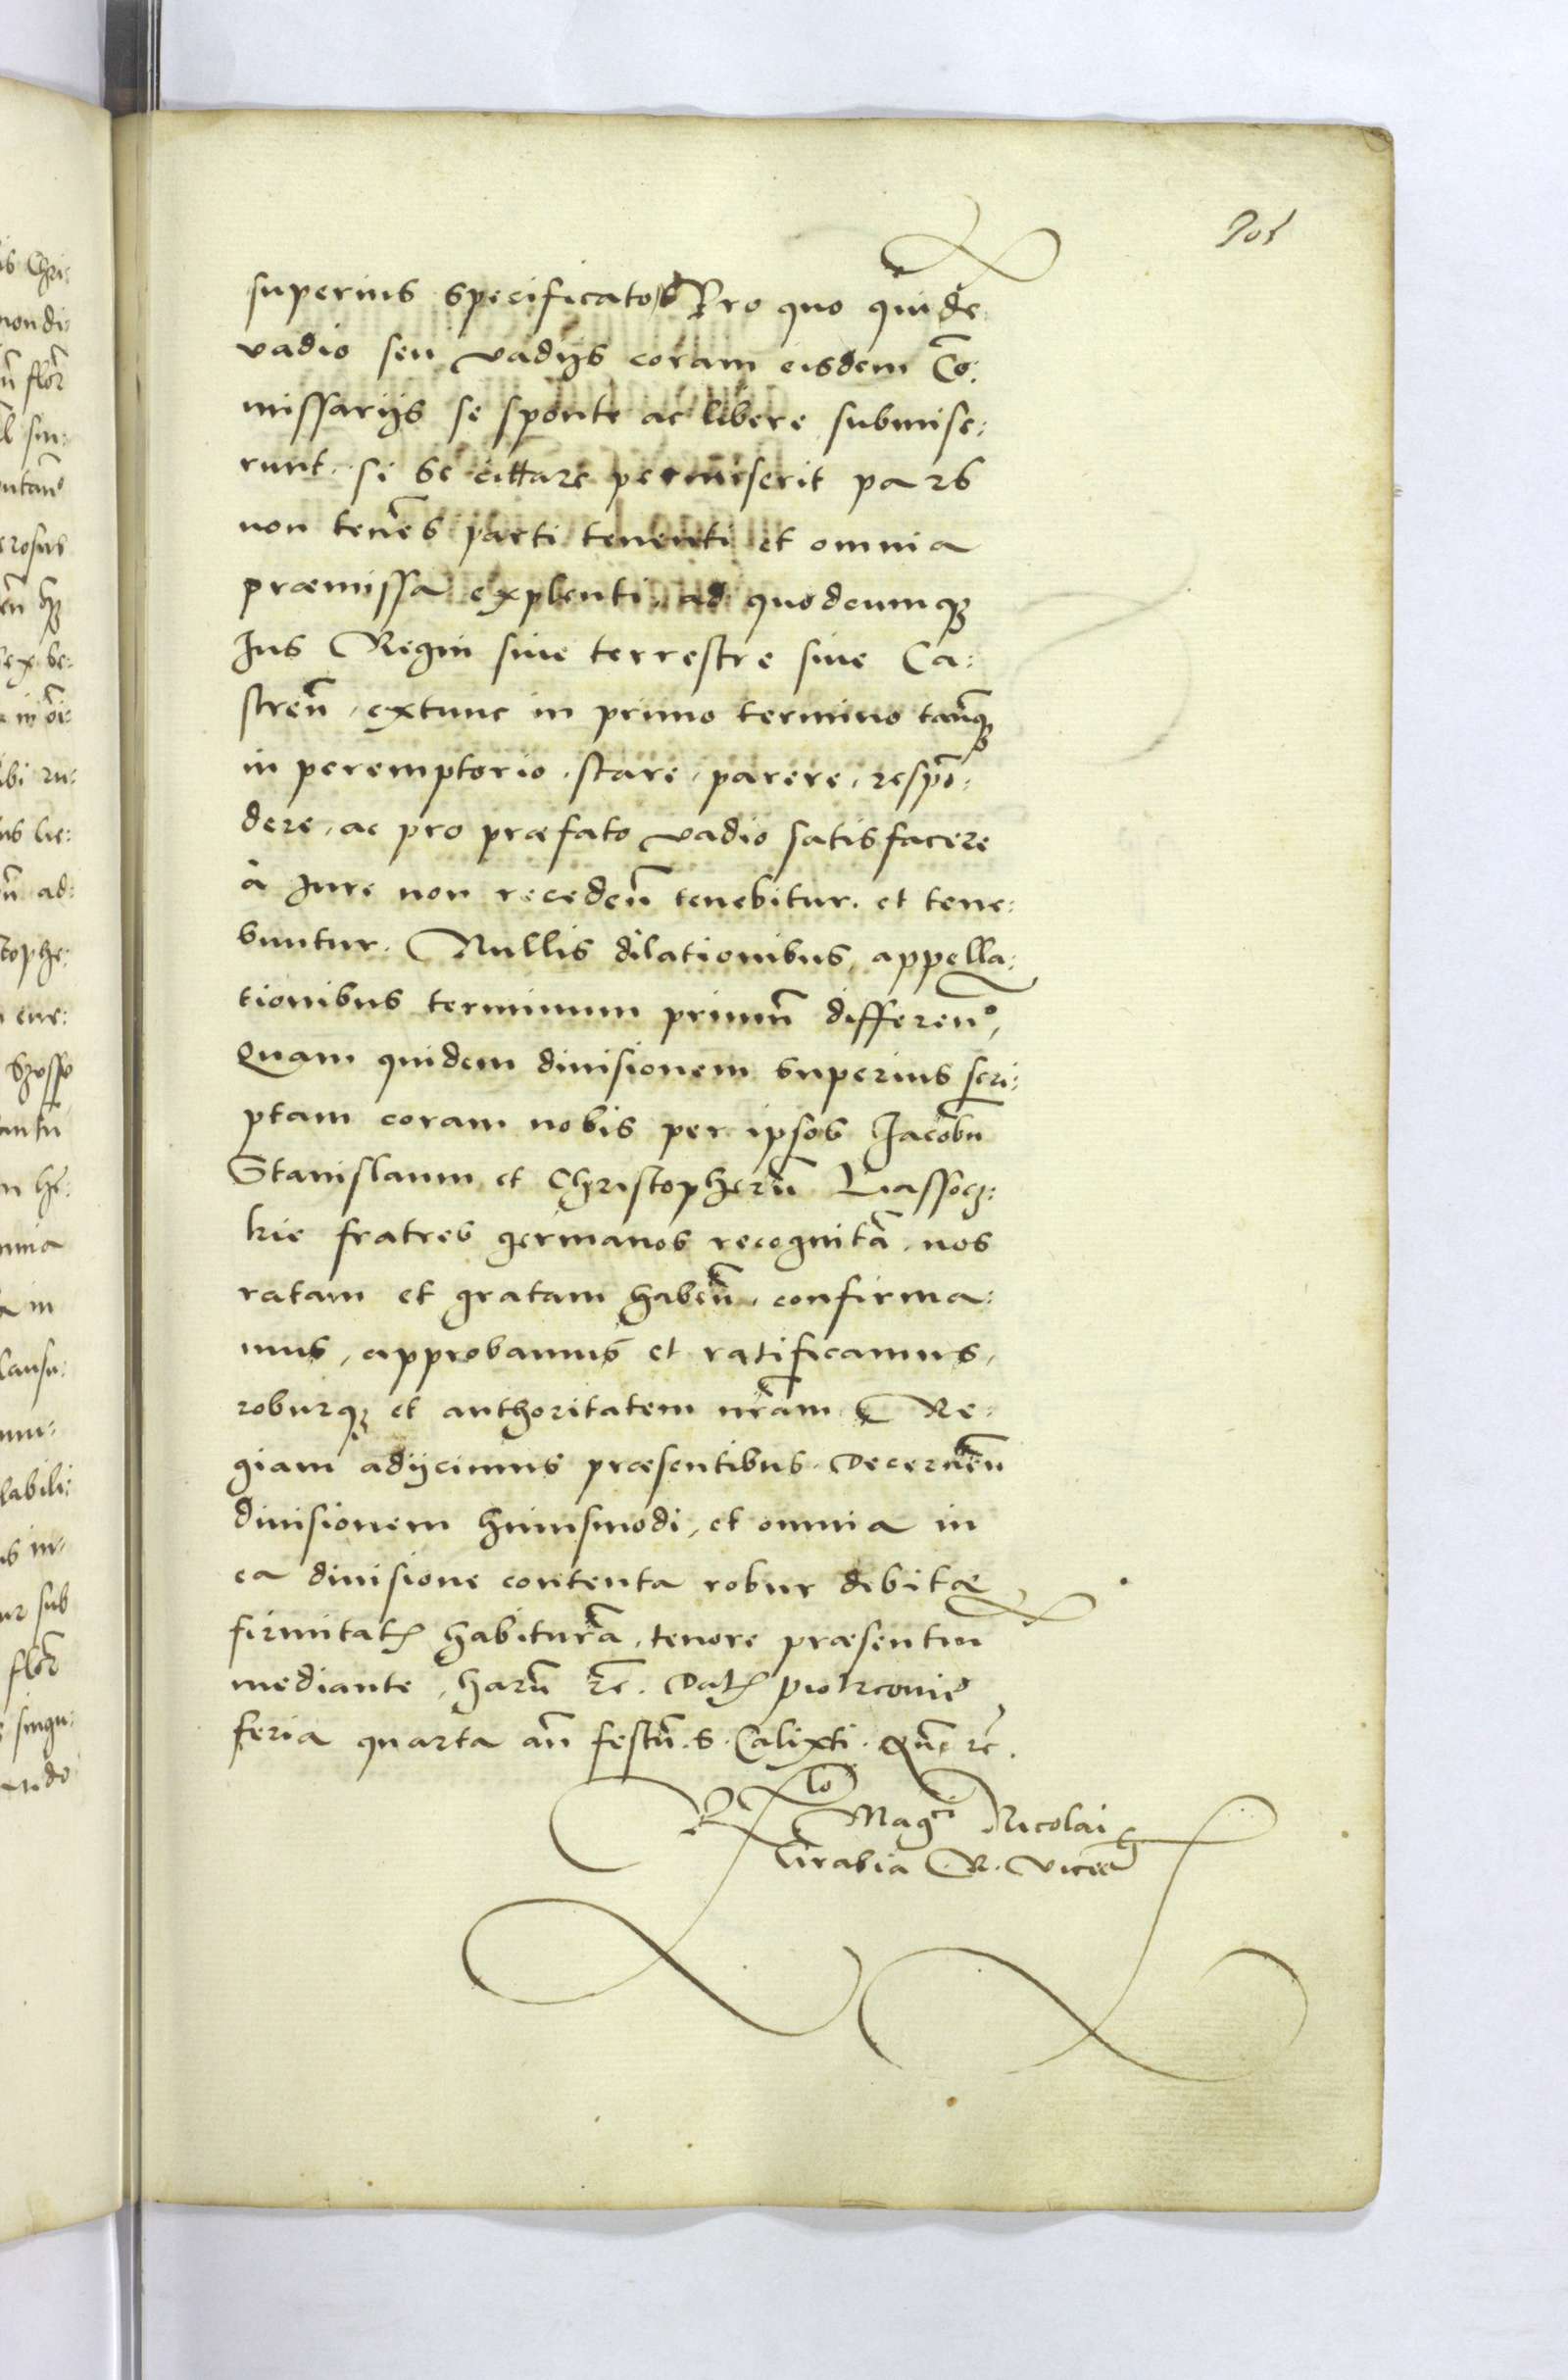 101
superius specificato, Pro quo quide
vadio seu vadijs coram eisdem Co͞:
missarijs se sponte ac libere submise:
runt. si se cittare permiserit pars
non tene͞s parti tenenti et omnia
præmissa explenti, ad quodcumq3
Jus Regni siue terrestre siue Ca:
stren͞, extunc in primo termino tanq3
in peremptorio. stare, parere, respo͞:
dere, ac pro præfato vadio satisfacere
à Jure non receden͞ tenebitur. et tene:
buntur. Nullis dilationibus, appella:
tionibus terminum primu͞ differen͞º,
Quam quidem diuisionem superius scri:
ptam coram nobis per ipsos Jacobu͞
Stanislaum et Christopheru͞ Liassocz:
kie fratres germanos recognita͞, nos
ratam et gratam haben͞, confirma:
mus, approbamus et ratificamus,
roburq3 et authoritatem nr͞am Re:
giam adijcimus præsentibus. Decernen͞
diuisionem huiusmodi, et omnia in
ea diuisione contenta robur debitæ
firmitat͞ habitura͞, tenore præsentiu͞
mediante, haru͞ rc͞. Dat͞ Piotrconie
feria quarta an͞ festu͞. S. Calixti. Qn͞e rc͞.
Rlo
Magci Nicolai
Grabia R. Vice
is Chri:
non di:
n͞ flor͞
l sin:
ntan͞º
erosus
en͞ hq3
sex se:
in oi͞:
ibi ru:
us lie:
n͞ ad:
tophe:
ene:
antu͞
n he͞:
nia
in
lausu:
labili:
is in:
ur sub
flor͞
singu: